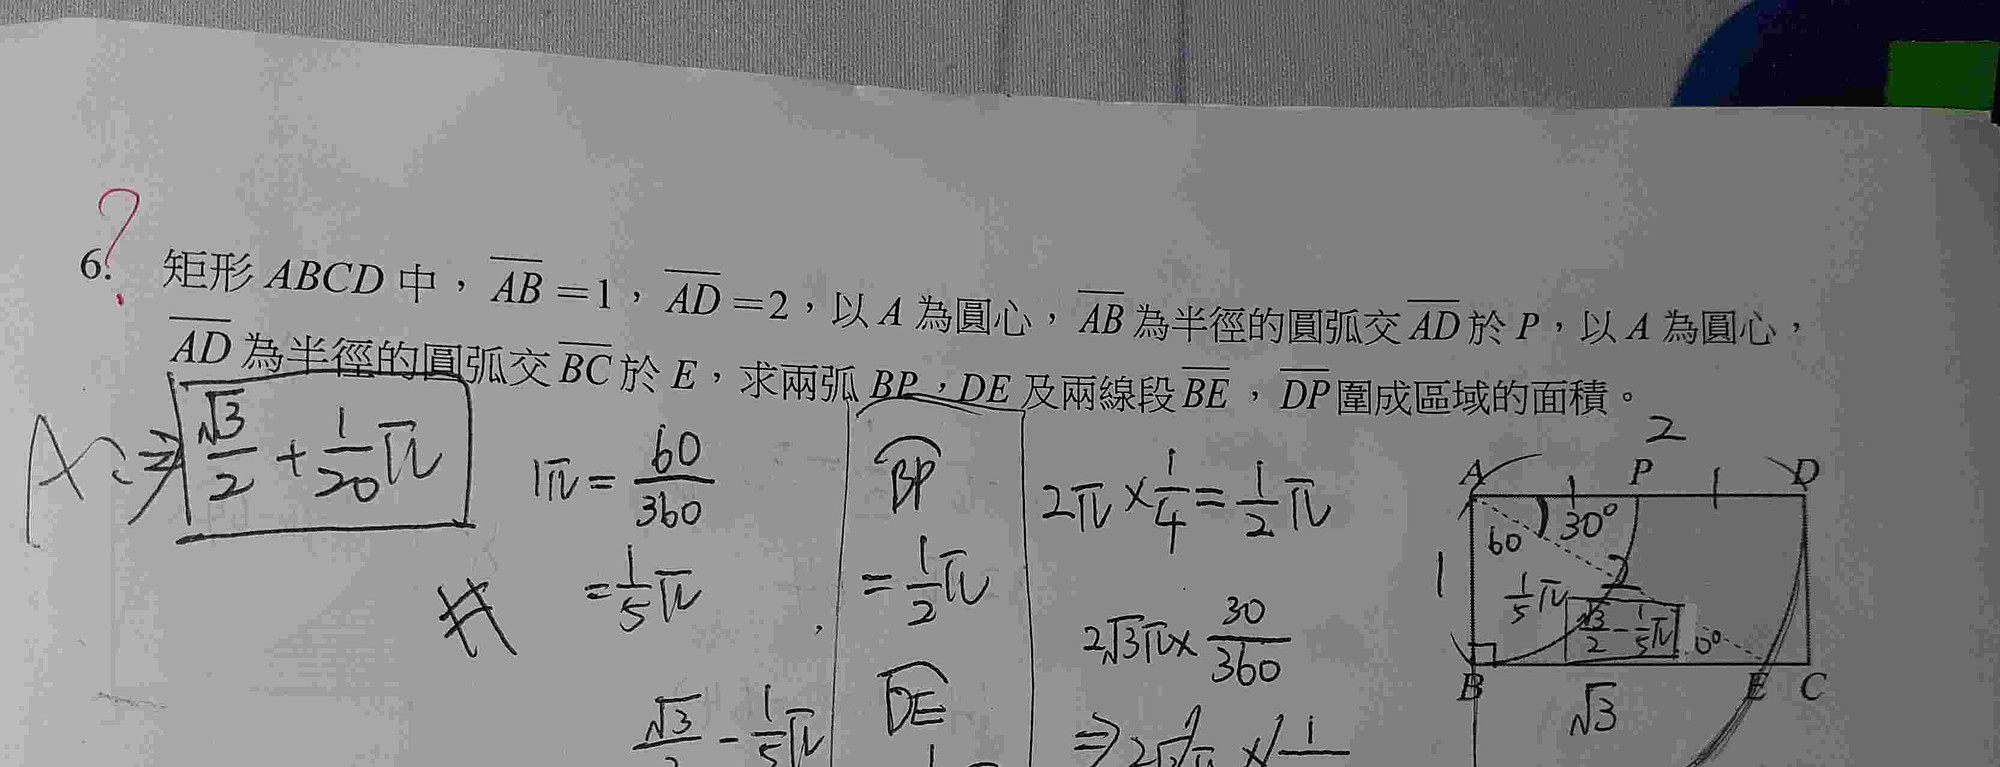 ?
6. 矩形 ABCD 中，AB=1，AD=2，以 A 為圓心，AB 為半徑的圓弧交 AD 於 P，以 A 為圓心，
AD 為半徑的圓弧交 BC 於 E，求兩弧 BP，DE 及兩線段 BE，DP 圍成區域的面積。
A:⇒ √3/2 + 1/20 π
#
1π = 60/360
= 1/5 π
√3/2 - 1/5 π
BP
= 1/2 π
DE
2π × 1/4 = 1/2 π
2√3π × 30/360
⇒
2
A P D
1 1
60 30°
1 2
1/5 π √3/2 - 1/5 π
B E C
√3